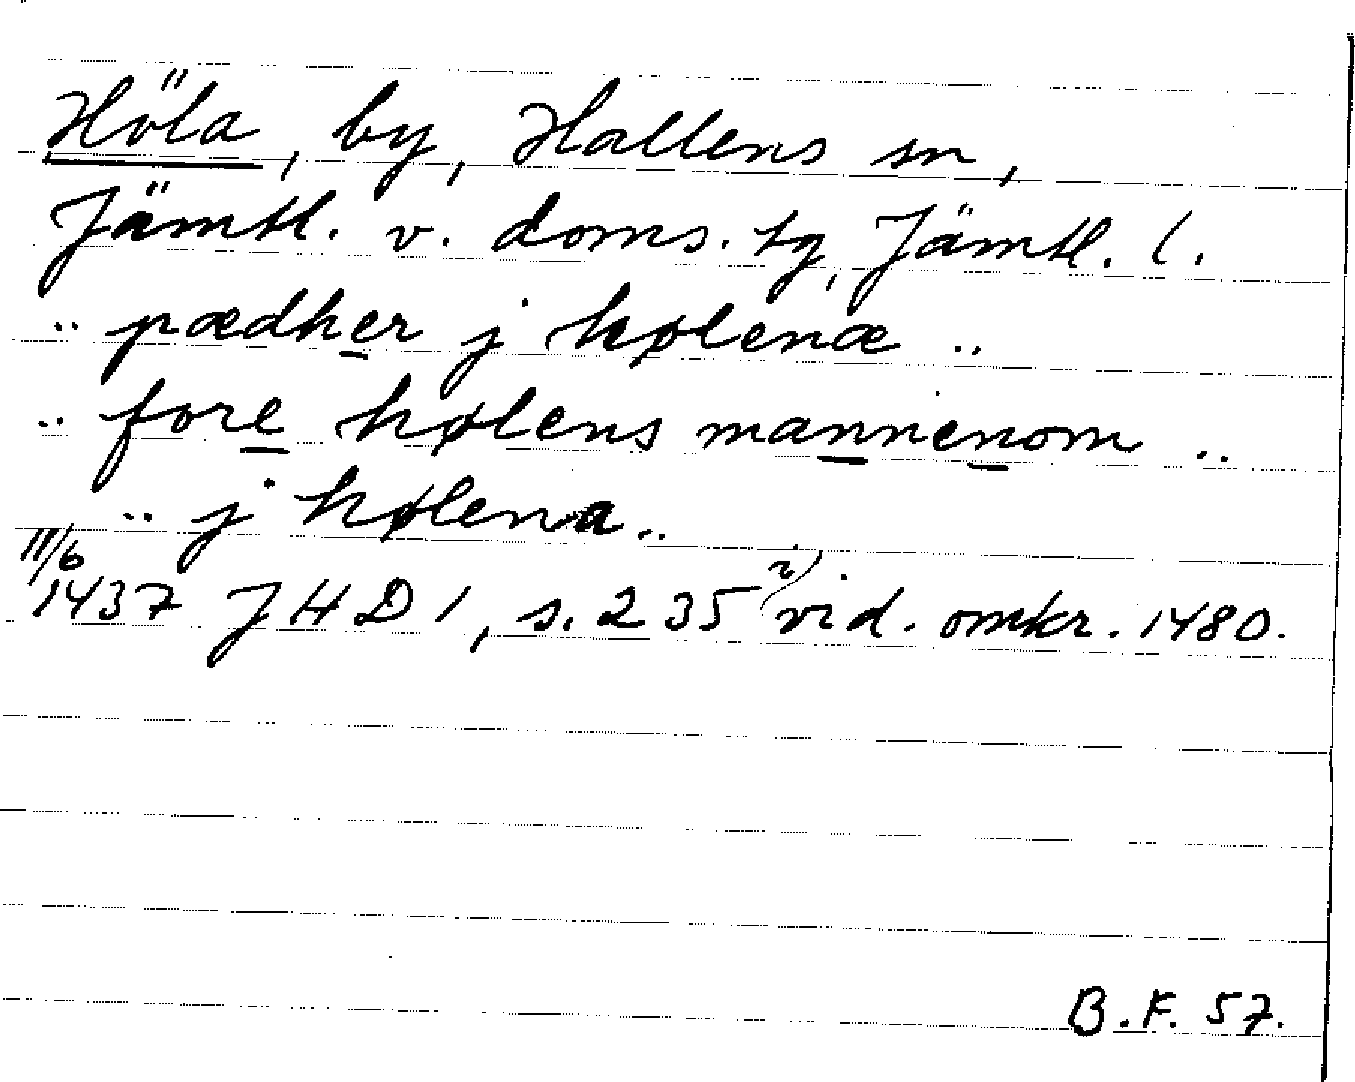 Höla, by, Hallens sn,
Jämtl. v. doms. tg, Jämtl. l.
.. pædher j hølenæ ..
.. fore hølens mannenom ..
.. j hølena ..
11/6
1437 JHD 1, s. 235 2) vid. omkr. 1480.
B.F. 57.